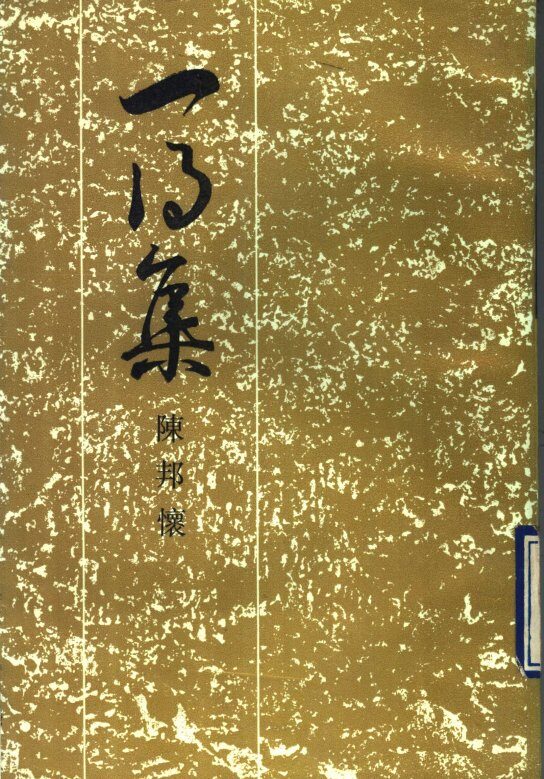 一得集
陳邦懷